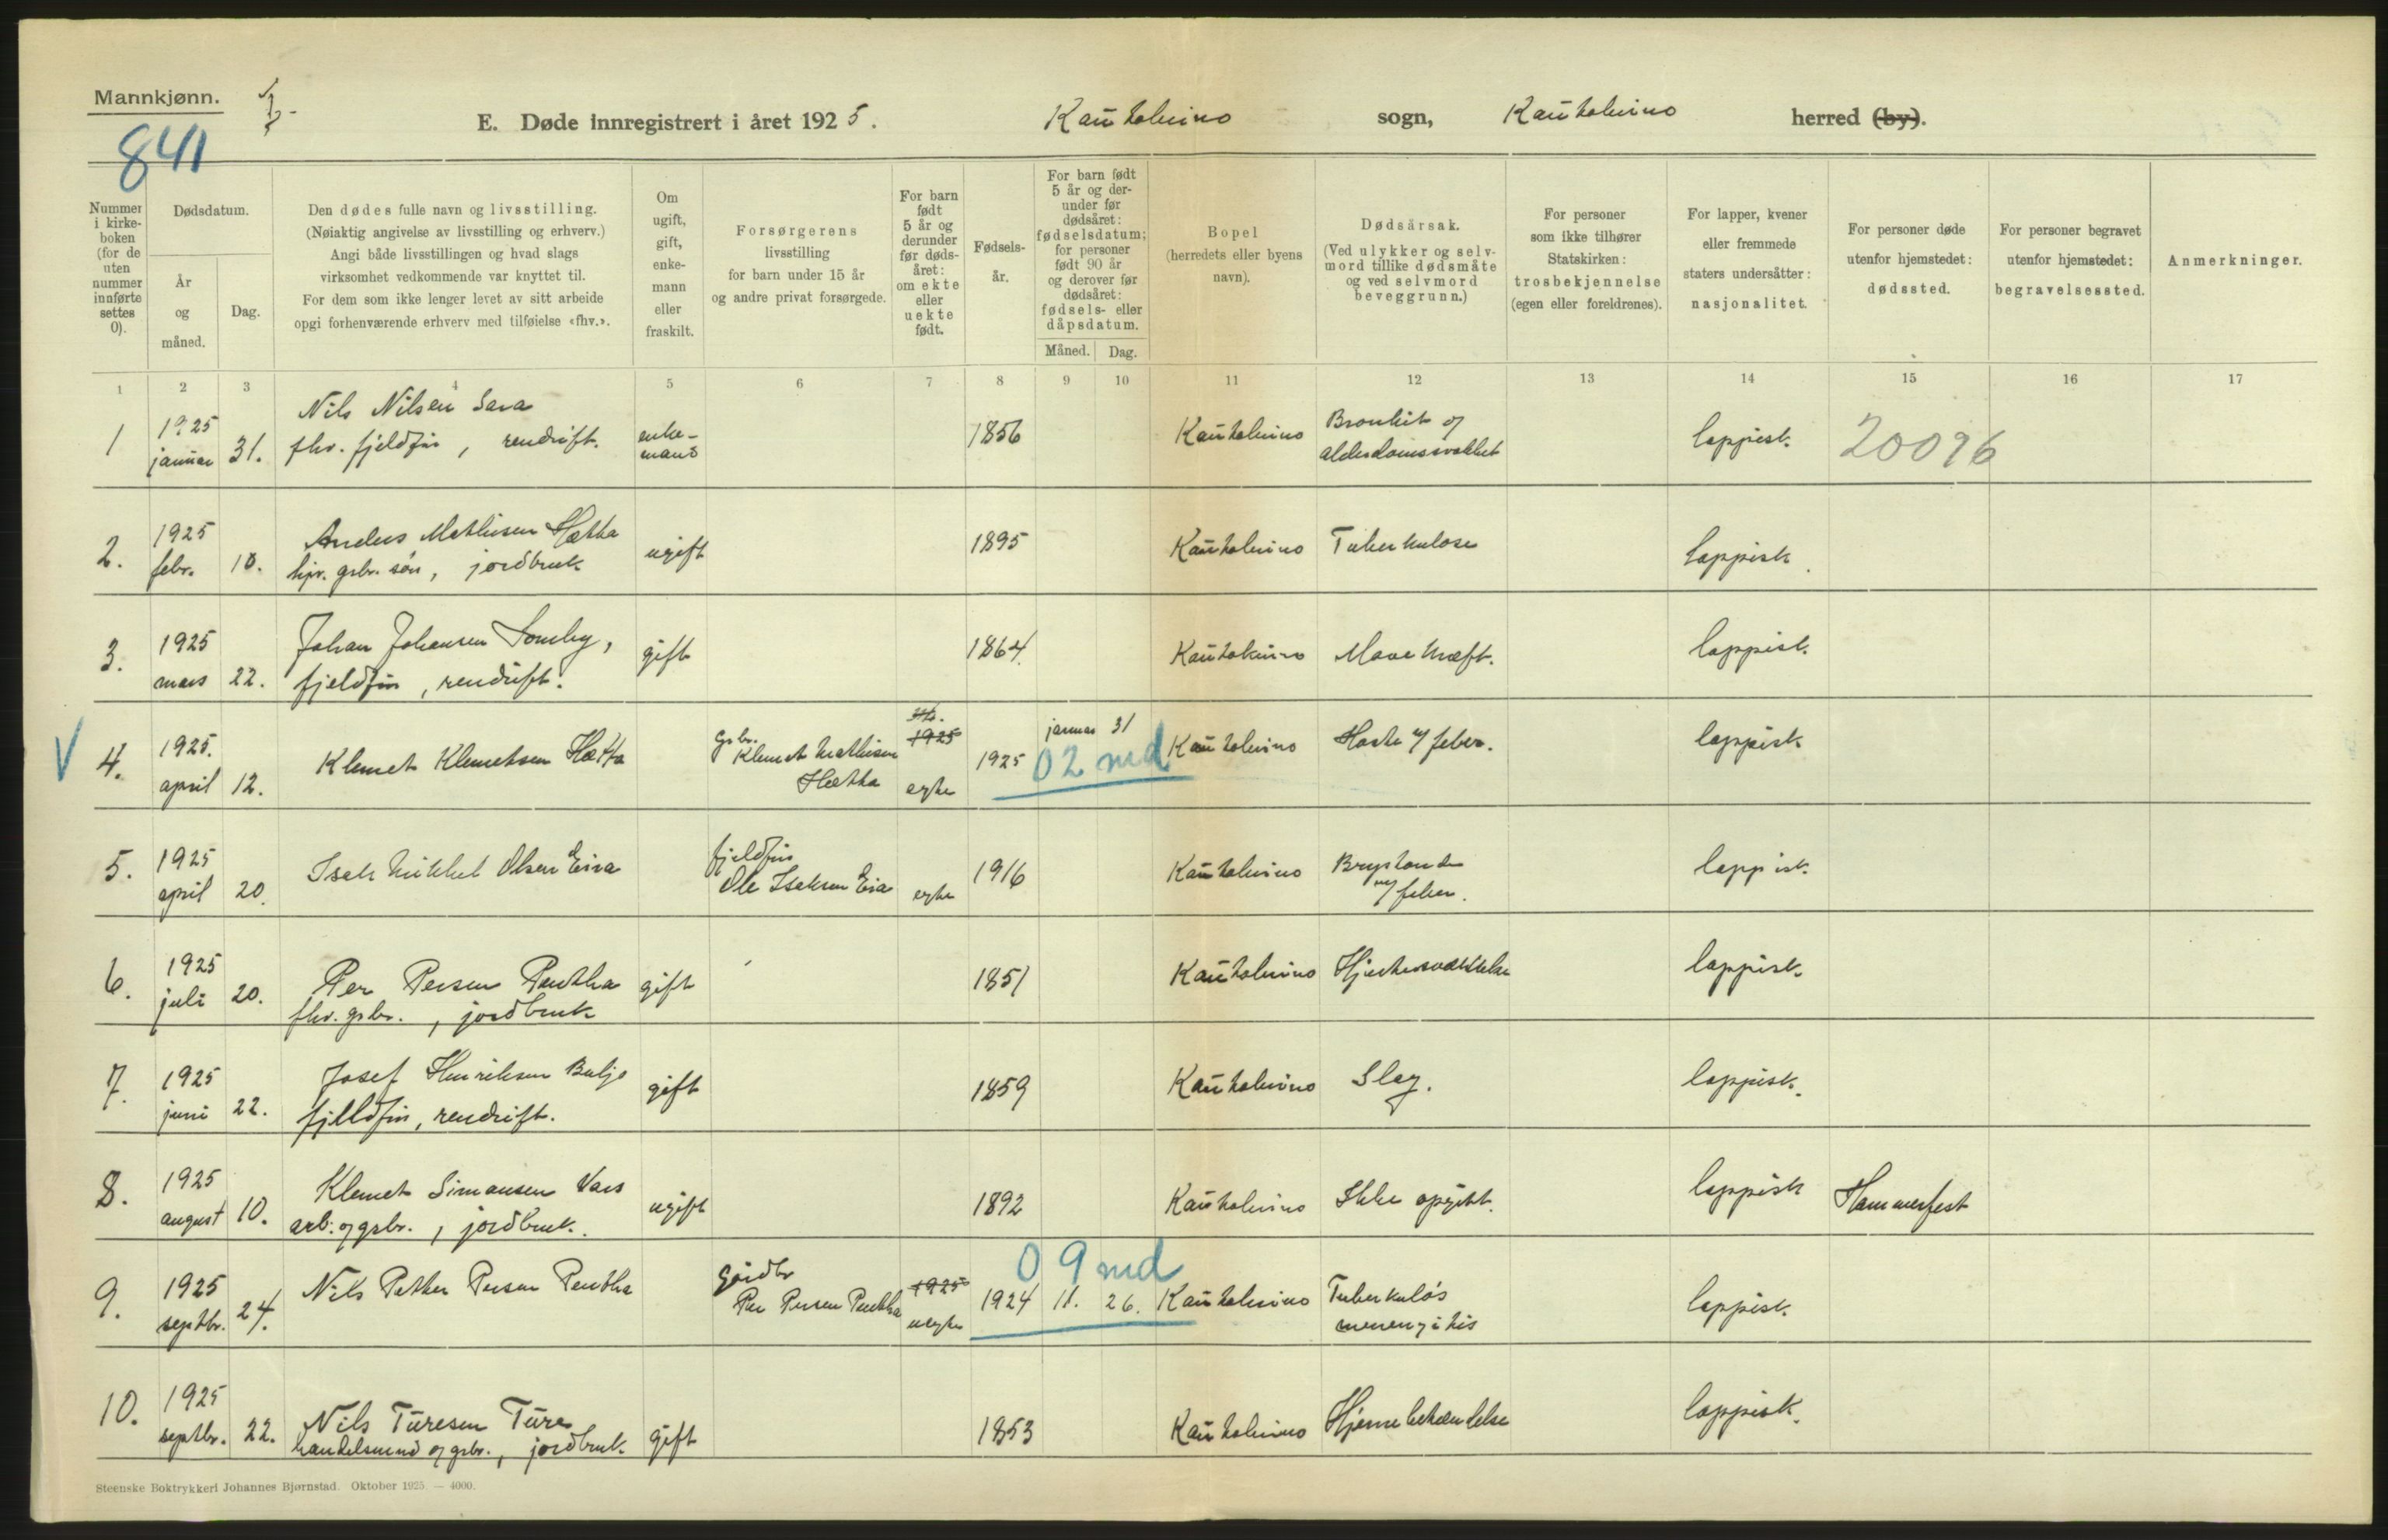 Mannkjønn.
841
E. Døde innregistrert i året 1925.
Kautokeino sogn, Kautokeino herred (by).
Nummer i kirke-boken (for de uten nummer innførte settes 0).
Dødsdatum.
År og måned.
Dag.
Den dødes fulle navn og livsstilling.
(Nøiaktig angivelse av livsstilling og erhverv.)
Angi både livsstillingen og hvad slags
virksomhet vedkommende var knyttet til.
For dem som ikke lenger levet av sitt arbeide
opgi forhenværende erhverv med tilføielse «fhv.».
Om ugift, gift, enke-mann eller fraskilt.
Forsørgerens
livsstilling
for barn under 15 år
og andre privat forsørgede.
For barn født 5 år og derunder før døds-året: om ekte eller uekte født.
Fødsels-år.
For barn født 5 år og der-under før dødsåret: fødselsdatum; for personer født 90 år og derover før dødsåret: fødsels- eller dåpsdatum.
Måned. Dag.
Bopel
(herredets eller byens
navn).
Dødsårsak.
(Ved ulykker og selv-
mord tillike dødsmåte
og ved selvmord
beveggrunn.)
For personer
som ikke tilhører
Statskirken:
trosbekjennelse
(egen eller foreldrenes).
For lapper, kvener
eller fremmede
staters undersåtter:
nasjonalitet.
For personer døde
utenfor hjemstedet:
dødssted.
For personer begravet
utenfor hjemstedet:
begravelsessted.
Anmerkninger.
1 2 3 4 5 6 7 8 9 10 11 12 13 14 15 16 17
1 1925 januar 31. Nils Nilsen Sara
fhv. fjeldfin, rendrift. enke-mand 1856 Kautokeino Bronkit og alderdomssvakhet lappisk. 20096
2. 1925 febr. 10. Anders Mathisen Hætta
hjv. gsbr. søn, jordbruk ugift 1895 Kautokeino Tuberkulose lappisk.
3. 1925 mars 22. Johan Johansen Somby,
fjeldfin, rendrift. gift 1864. Kautokeino Mavekræft. lappisk.
V 4. 1925. april 12. Klemet Klemetsen Hætta
gsbr. Klemet Mathisen Hætta 1925 egte 1925 januar 31 02 md Kautokeino Hoste m/ feber. lappisk
5. 1925 april 20. Isak Mikkel Olsen Eira
fjeldfin Ole Isaksen Eira egte 1916 Kautokeino Brystonde m/ feber. lappisk.
6. 1925 juli 20. Per Persen Pentha
fhv. gsbr., jordbruk gift 1851 Kautokeino Hjertesvækkelse lappisk.
7. 1925 juni 22. Josef Henriksen Buljo
fjeldfin, rendrift. gift 1859 Kautokeino Slag. lappisk.
8. 1925 august 10. Klemet Simonsen Vars
arb. og gsbr., jordbruk. ugift 1892 Kautokeino Ikke opgitt. lappisk Hammerfest
9. 1925 septbr. 24. Nils Petter Persen Pentha
Gårdbr Per Persen Pentha 1925 uegte 1924 11. 26. 09 md Kautokeino Tuberkuløs meningitis lappisk.
10. 1925 septbr. 22. Nils Turesen Ture
handelsmand og gsbr., jordbruk. gift 1853 Kautokeino lappisk.
Steenske Boktrykkeri Johannes Bjørnstad. Oktober 1925. — 4000.